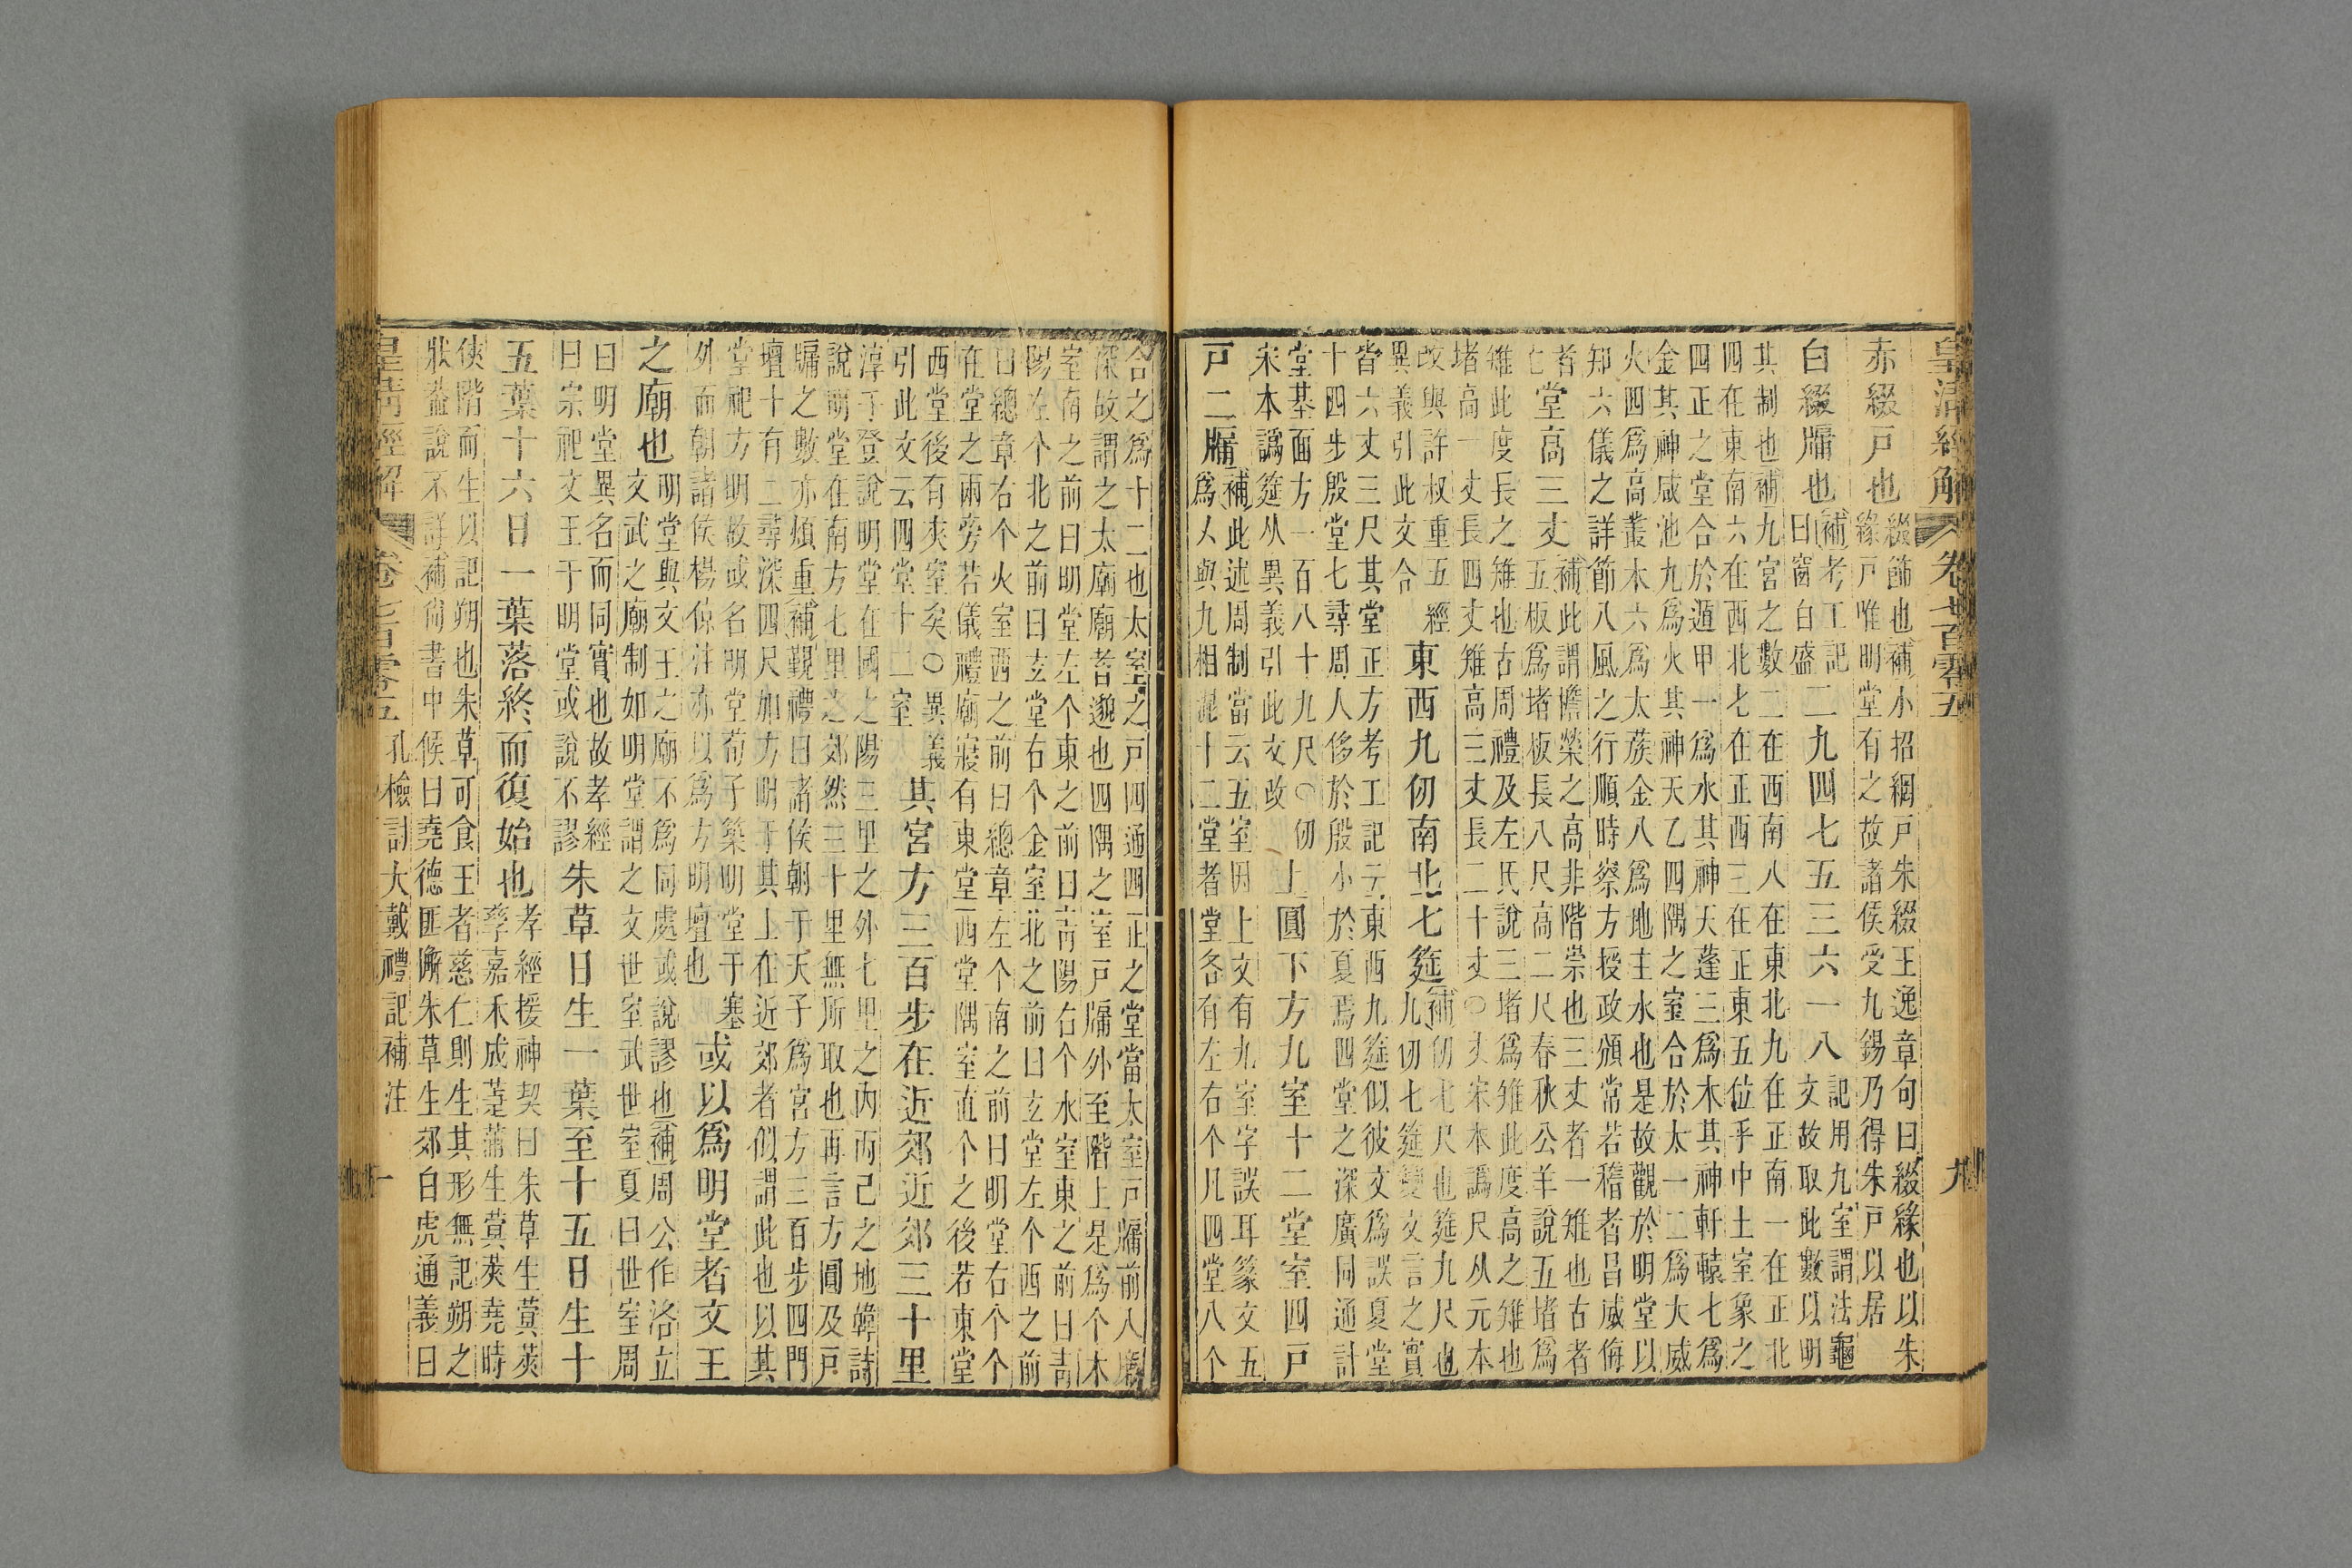 皇清經解 卷七百零五 九
赤綴戸也
綴飾也補小招網戸朱綴王逸章句曰綴緣也以朱
緣戸唯明堂有之故諸侯受九錫乃得朱戸以居
白綴牖也
補考工記
曰窗白盛
二九四七五三六一八
記用九室謂法龜
文故取此數以明
其制也補九宮之數二在西南八在東北九在正南一在正北
四在東南六在西北七在正西三在正東五位乎中土室象之
四正之堂合於遁甲一爲水其神天蓬三爲木其神軒轅七爲
金其神咸池九爲火其神天乙四隅之室合於太一二爲大威
火四爲高叢木六爲太蔟金八爲地主水也是故觀於明堂以
知六儀之詳節八風之行順時察方授政頒常若稽者昌威侮
者
亡
堂高三丈
補此謂檐榮之高非階崇也三丈者一雉也古者
五板爲堵板長八尺高二尺春秋公羊說五堵爲
雉此度長之雉也古周禮及左氏說三堵爲雉此度高之雉也
堵高一丈長四丈雉高三丈長二十丈○丈宋本譌尺从元本
改與許叔重五經
異義引此文合
東西九仞南北七筵
補仞七尺也筵九尺也
九仞七筵變文言之實
皆六丈三尺其堂正方考工記云東西九筵似彼文爲誤夏堂
十四步殷堂七尋周人侈於殷小於夏焉四堂之深廣同通計
堂基面方一百八十九尺○仞
宋本譌筵从異義引此文改
上圓下方九室十二堂室四戸
戸二牖
補此述周制當云五室因上文有九室字誤耳篆文五
爲㐅與九相混十二堂者堂各有左右个凡四堂八个
合之爲十二也太室之戸四通四正之堂當太室戸牖前八墉
深故謂之太廟廟者邈也四隅之室戸牖外至階上是爲个木
室南之前曰明堂左个東之前曰靑陽右个水室東之前曰靑
陽左个北之前曰玄堂右个金室北之前曰玄堂左个西之前
曰總章右个火室西之前曰總章左个南之前曰明堂右个个
在堂之兩旁若儀禮廟寢有東堂西堂隅室直个之後若東堂
西堂後有夾室矣○異義
引此文云四堂十二室
其宮方三百步在近郊近郊三十里
淳于登說明堂在國之陽三里之外七里之內丙己之地韓詩
說明堂在南方七里之郊然三十里無所取也再言方圓及戸
牖之數亦煩重補覲禮曰諸侯朝于天子爲宮方三百步四門
壇十有二尋深四尺加方明于其上在近郊者似謂此也以其
堂祀方明故或名明堂荀子築明堂于塞
外而朝諸侯楊倞注亦以爲方明壇也
或以爲明堂者文王
之廟也
明堂與文王之廟不爲同處或說謬也補周公作洛立
文武之廟制如明堂謂之文世室武世室夏曰世室周
曰明堂異名而同實也故孝經
曰宗祀文王于明堂或說不謬
朱草日生一葉至十五日生十
五葉十六日一葉落終而復始也
孝經援神契曰朱草生蓂莢
孳嘉禾成萐莆生蓂莢堯時
俠階而生以記朔也朱草可食王者慈仁則生其形無記朔之
狀蓋說不詳補尚書中候曰堯德匪懈朱草生郊白虎通義曰
皇清經解 卷七百零五 孔檢討大戴禮記補注 十